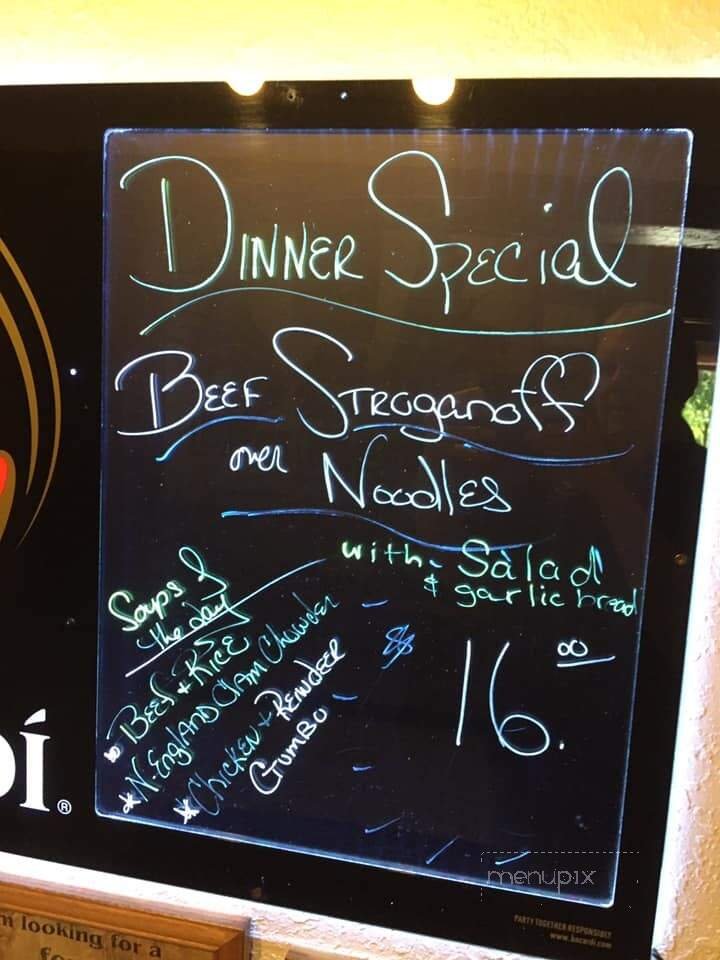 Dinner Special
Beef Stroganoff
over Noodles
with - Salad
& garlic bread
$16.00
Soups of
the day
Beef + Rice
* N. England Clam Chowder
* Chicken + Reindeer
Gumbo
Dí®
menupix
PARTY TOGETHER RESPONSIBLY
www.bacardi.com
m looking for a